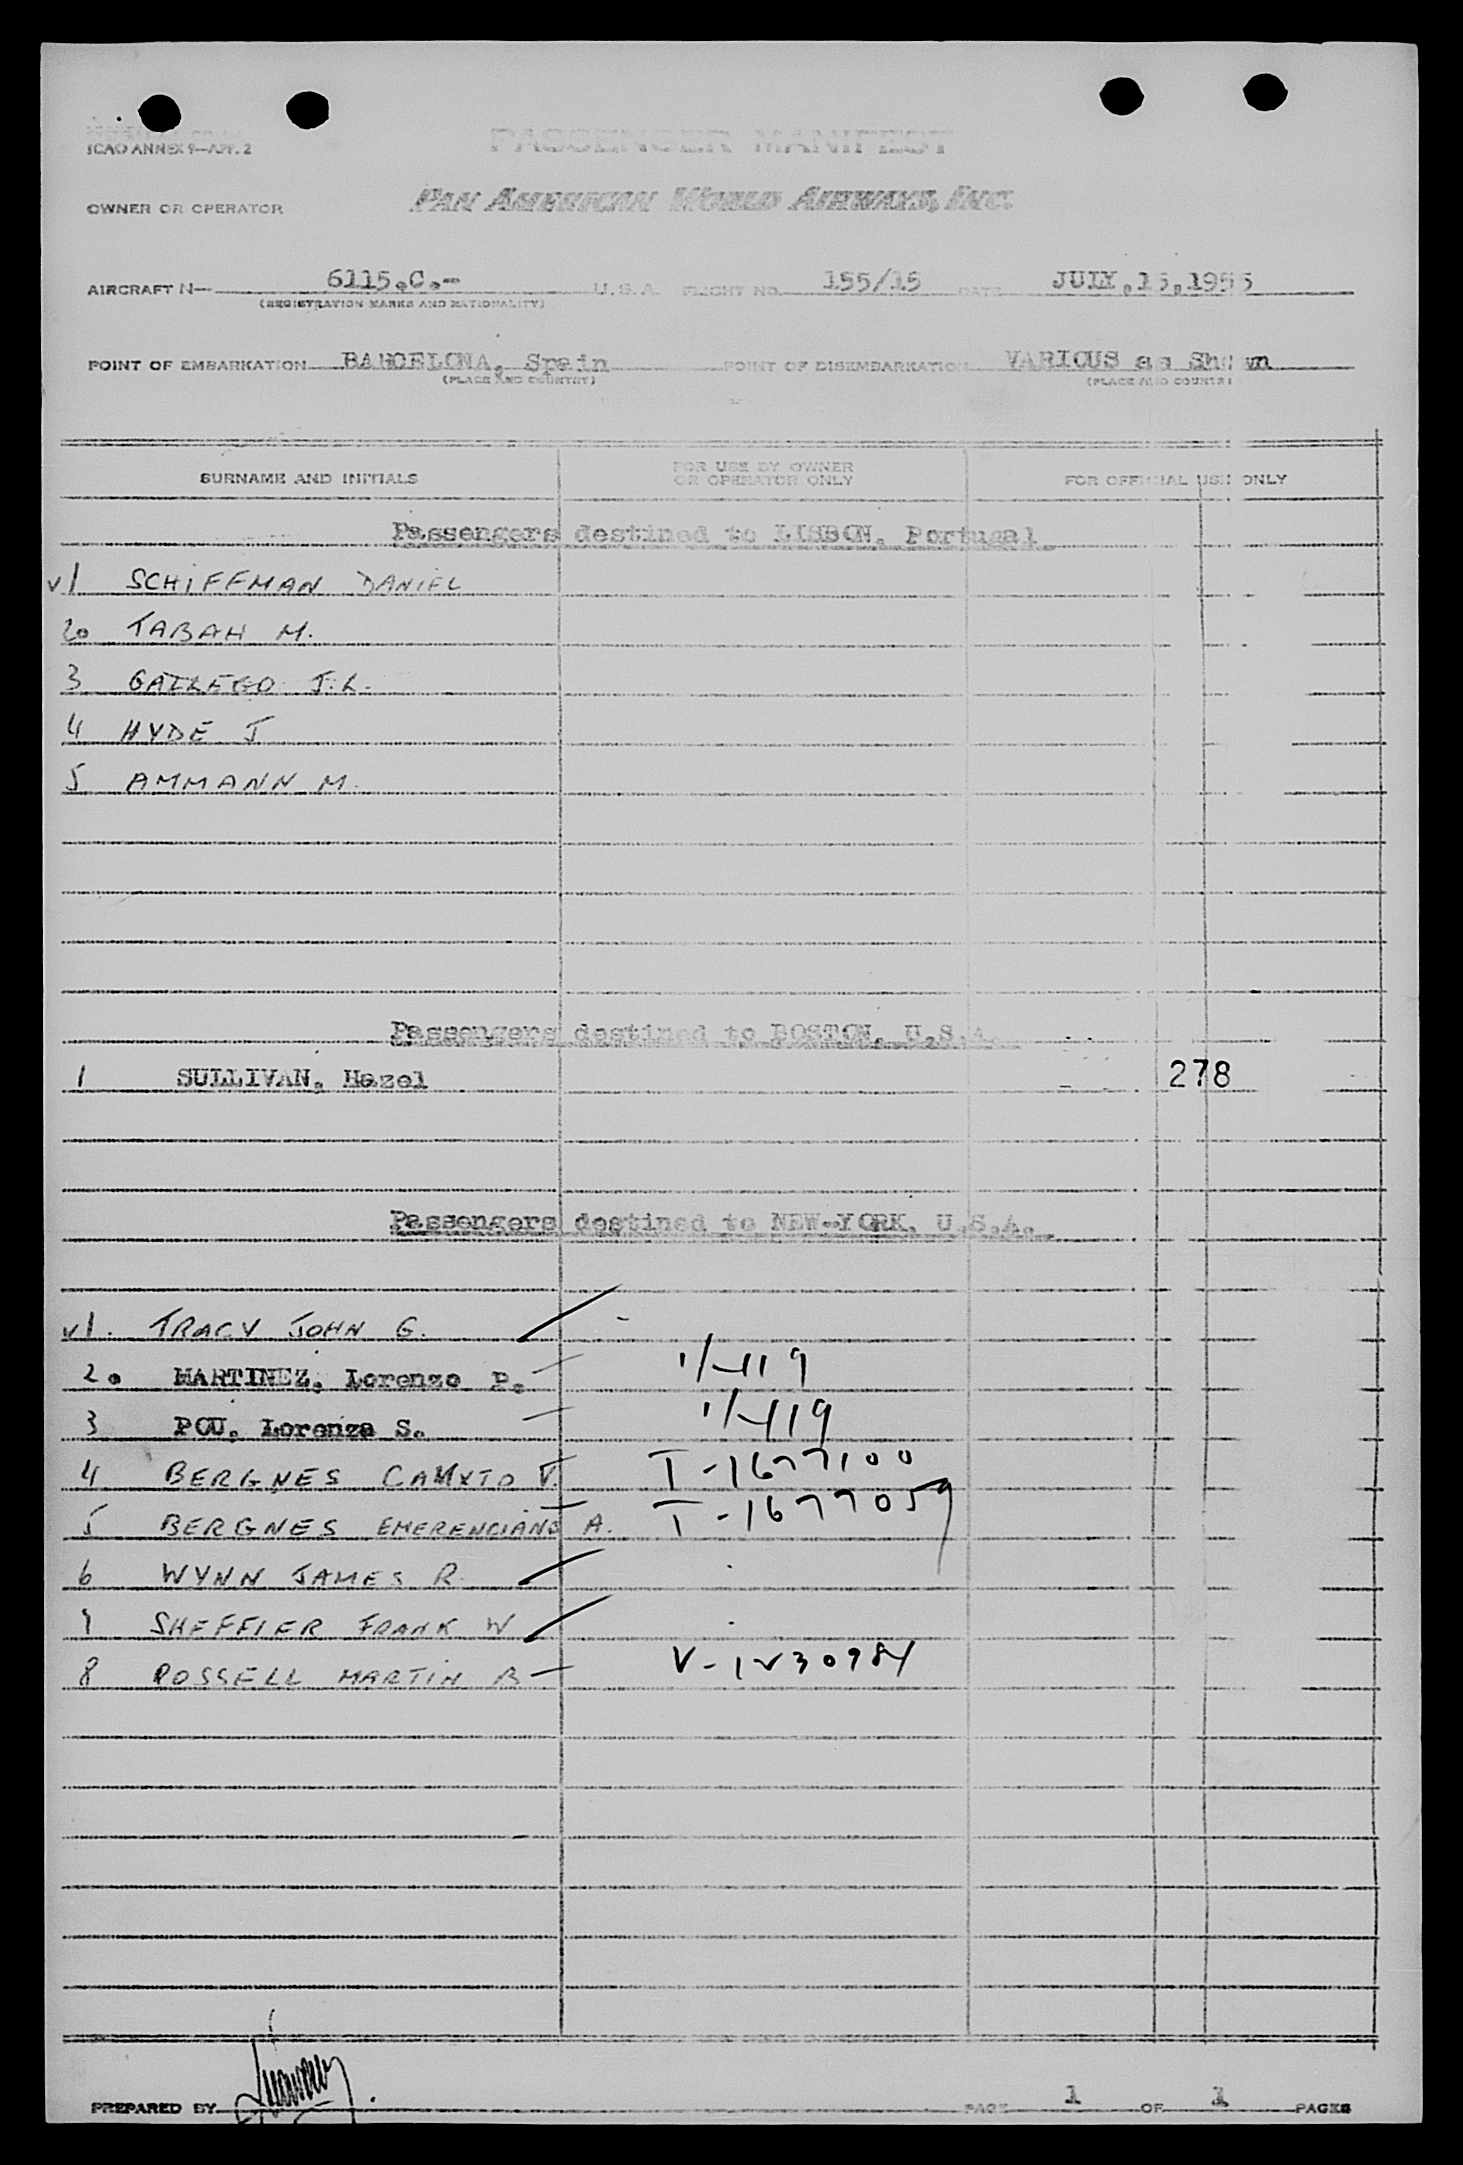 ICAO ANNEX 9—APP. 2
PASSENGER MANIFEST
OWNER OR OPERATOR PAN AMERICAN WORLD AIRWAYS, INC.
AIRCRAFT N— 6115.C.- U.S.A. FLIGHT NO. 155/15 DATE JULY.15,1955
(REGISTRATION MARKS AND NATIONALITY)
POINT OF EMBARKATION BARCELONA, Spain POINT OF DISEMBARKATION VARIOUS as Shown
(PLACE AND COUNTRY) (PLACE AND COUNTRY)
SURNAME AND INITIALS FOR USE BY OWNER OR OPERATOR ONLY FOR OFFICIAL USE ONLY
Passengers destined to LISBON, Portugal
v1 SCHIFFMAN DANIEL
2. TABAH M.
3 GALLEGO J.L.
4 HYDE J
5 AMMANN M.
Passengers destined to BOSTON, U.S.A.
1 SULLIVAN, Hazel 278
Passengers destined to NEW-YORK, U.S.A.
v1. TRACY JOHN G.
2. MARTINEZ, Lorenzo P.
3 POU, Lorenza S.
4 BERGNES T-1677100
5 BERGNES EMERENCIANO A. T-1677059
6 WYNN JAMES R.
7 SHEFFIER FRANK W
8 ROSSELL MARTIN B V-1230984
PREPARED BY PAGE 1 OF 1 PAGES